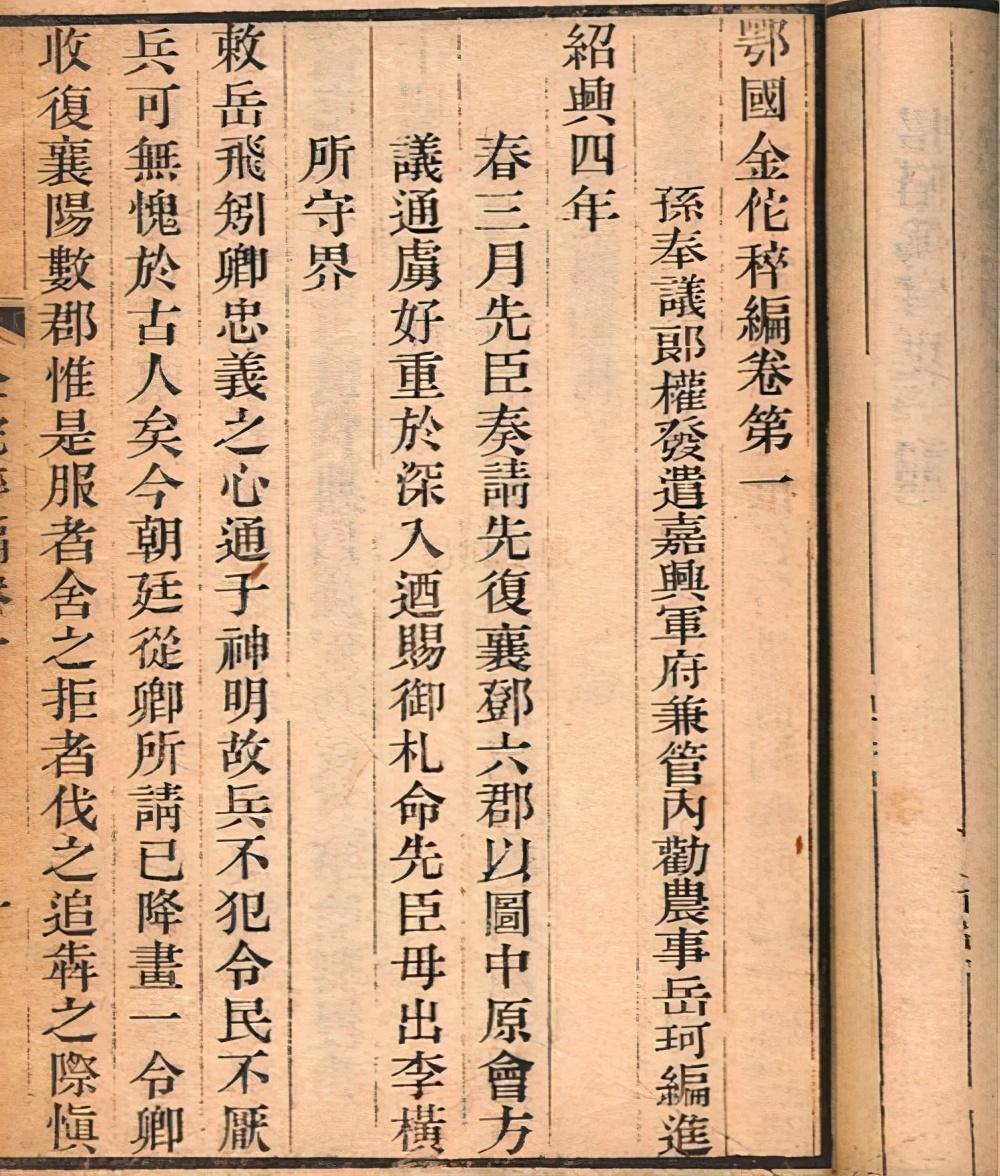 鄂國金佗稡編卷第一
孫奉議郎權發遣嘉興軍府兼管內勸農事岳珂編進
紹興四年
春三月先臣奏請先復襄鄧六郡以圖中原會方
議通虜好重於深入迺賜御札命先臣毋出李橫
所守界
敕岳飛矧卿忠義之心通于神明故兵不犯令民不厭
兵可無愧於古人矣今朝廷從卿所請已降畫一令卿
收復襄陽數郡惟是服者舍之拒者伐之追犇之際愼